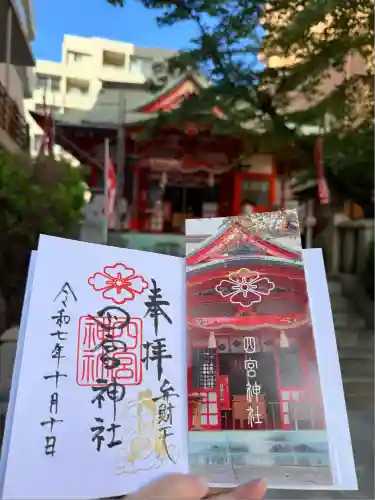 奉拝
弁財天
四宮神社
四宮神社
令和七年十月十日
四宮神社